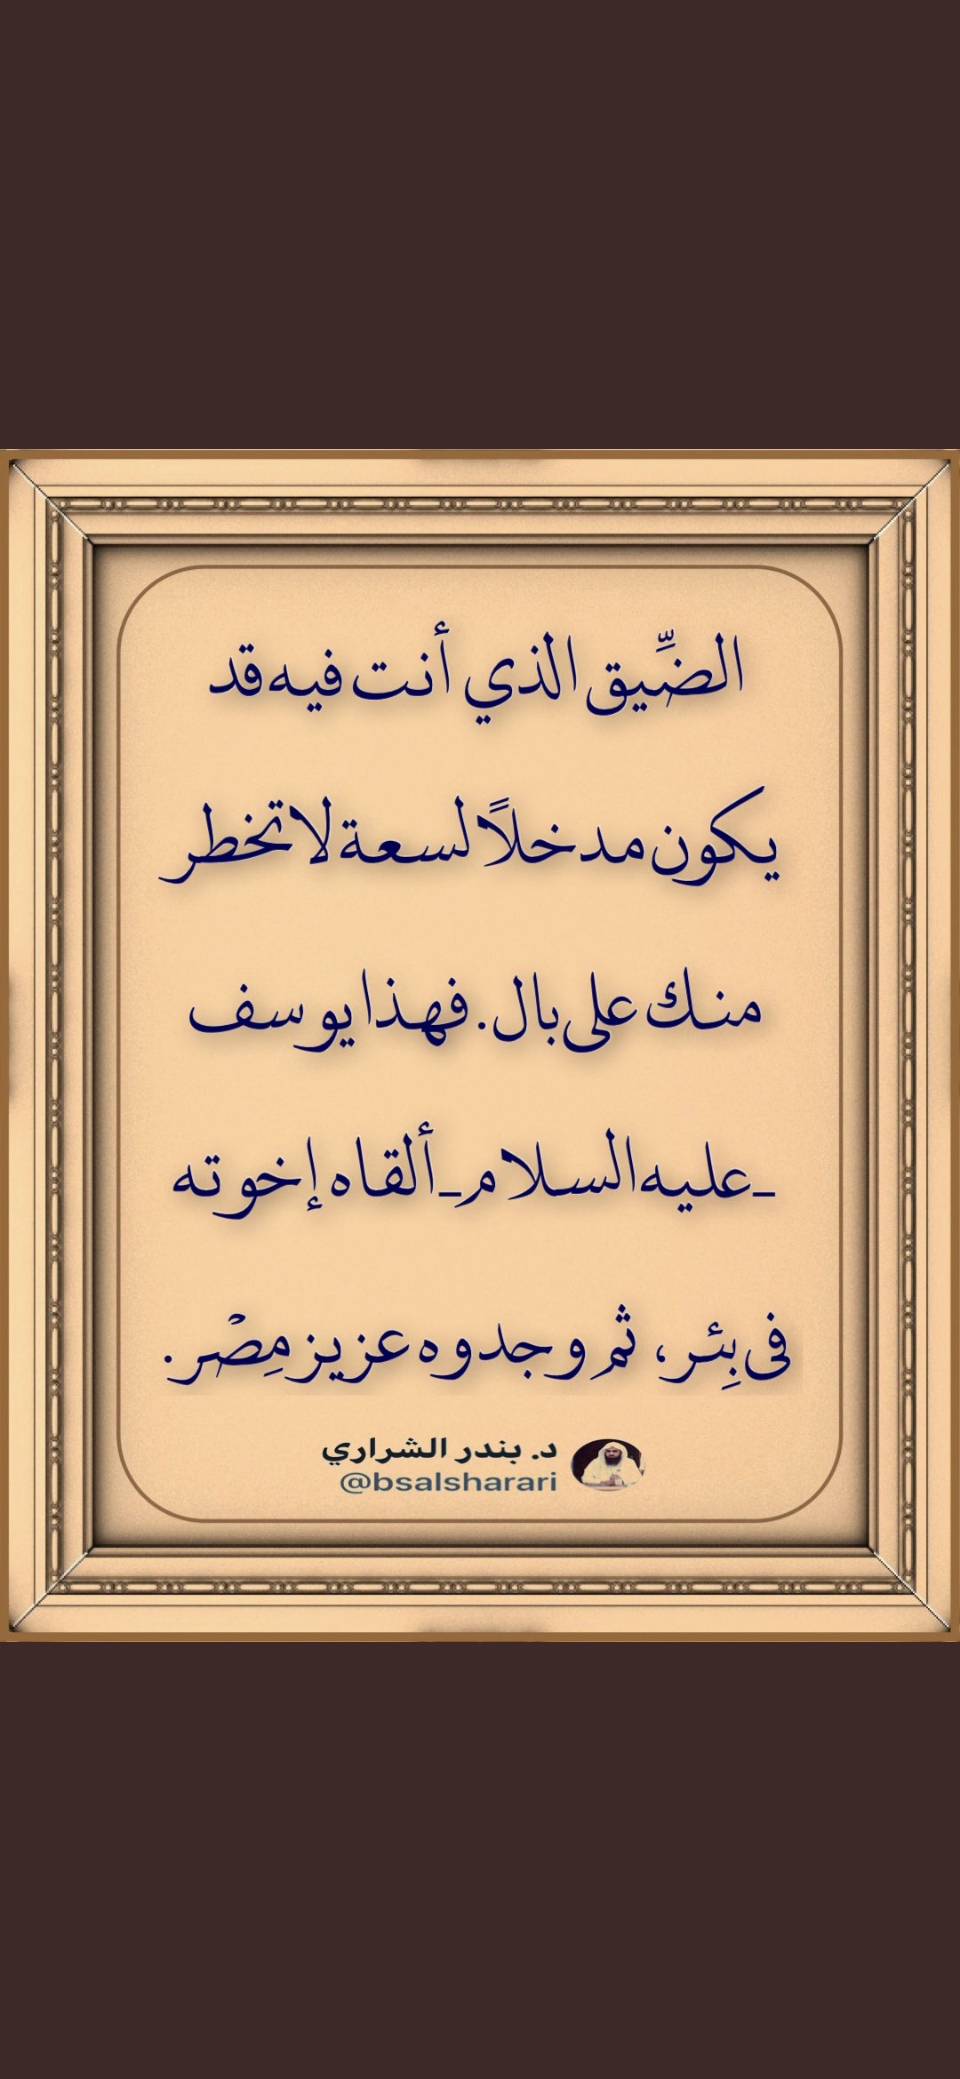 الضِّيق الذي أنت فيه قد
يكون مدخلاً لسعة لا تخطر
منك على بال. فهذا يوسف
_عليه السلام_ ألقاه إخوته
في بِئر، ثم وجدوه عزيز مِصْر.
د. بندر الشراري
@bsalsharari